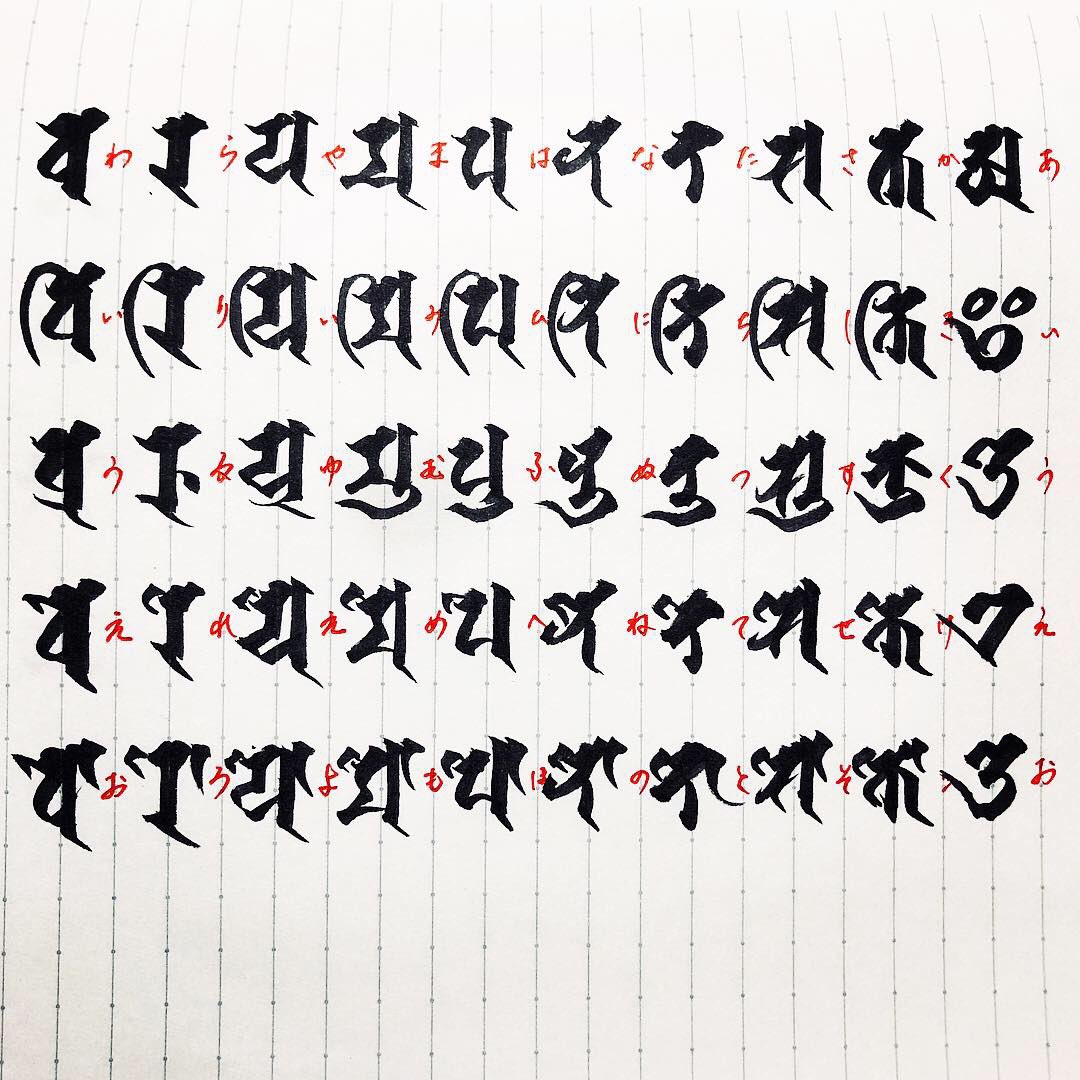 𑖀 あ 𑖂 い 𑖄 う 𑖊 え 𑖌 お
𑖎 か 𑖎𑖰 き 𑖎𑖲 く 𑖎𑖸 け 𑖎𑖺 こ
𑖭 さ 𑖭𑖰 し 𑖭𑖲 す 𑖭𑖸 せ 𑖭𑖺 そ
𑖝 た 𑖝𑖰 ち 𑖝𑖲 つ 𑖝𑖸 て 𑖝𑖺 と
𑖡 な 𑖡𑖰 に 𑖡𑖲 ぬ 𑖡𑖸 ね 𑖡𑖺 の
𑖢 は 𑖢𑖰 ひ 𑖢𑖲 ふ 𑖢𑖸 へ 𑖢𑖺 ほ
𑖦 ま 𑖦𑖰 み 𑖦𑖲 む 𑖦𑖸 め 𑖦𑖺 も
𑖧 や 𑖧𑖰 い 𑖧𑖲 ゆ 𑖧𑖸 え 𑖧𑖺 よ
𑖨 ら 𑖨𑖰 り 𑖨𑖲 る 𑖨𑖸 れ 𑖨𑖺 ろ
𑖪 わ 𑖪𑖰 い 𑖪𑖲 う 𑖪𑖸 え 𑖪𑖺 お